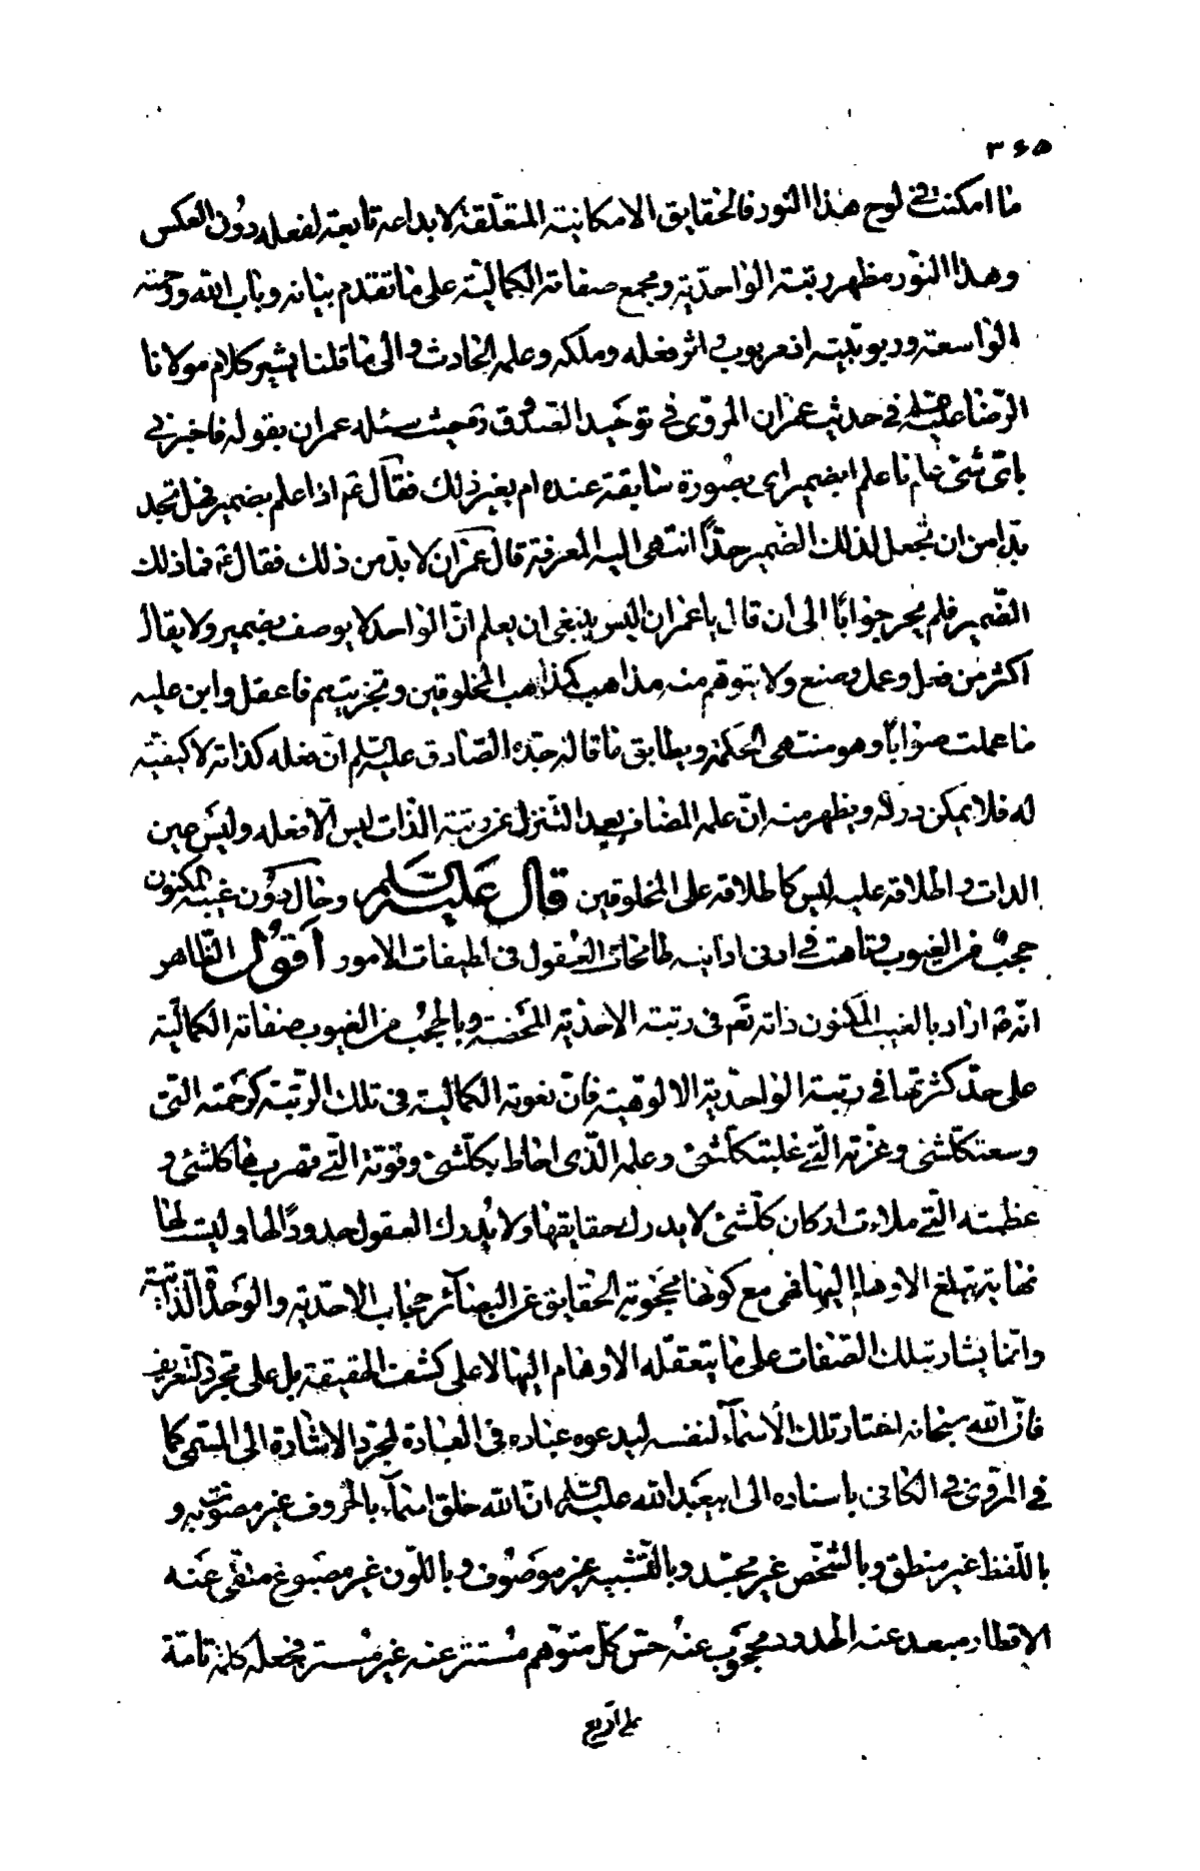 ۳۶۵
ما امكنت فى لوح هذا النور فالحقايق الامكانية المتعلقة لابداعه تابعة لفعله دون العكس
وهذا النور مظهر رتبة الواحدية ومجمع صفاته الكمالية على ما تقدم بيانه وباب الله ورحمته
الواسعة وربوبيته اذ مربوب و اثر فعله وملكه وعلمه الحادث والى ما قلنا يشير كلام مولانا
الرضا عليه السلام فى حديث عمران المروى فى توحيد الصدوق ره حيث سئله عمران بقوله فاخبرنى
باى شئ علم ما علم ابضمير اى بصورة سابقة عنده ام بغير ذلك فقال ع اذا علم بضمير فهل تجد
بدا من ان تجعل لذلك الضمير حدّاً انتهى اليه المعرفة قال عمران لا بد من ذلك فقال ع فما ذلك
الضمير فلم يحر جواباً الى ان قال يا عمران اليس ينبغى ان يعلم انّ الواحد لا يوصف بضمير ولا يقال
اكثر من فعل وعمل وصنع ولا يتوهم منه مذاهب كمذاهب المخلوقين وتجزيتهم فاعقل وابن عليه
ما عملت صواباً وهو منتهى الحكمة ويطابق ما قاله جدّه الصادق عليه السلم انّ فعله كذاته لا كيفيّة
له فلا يمكن دركه ويظهر منه انّ علمه المضاف بعد التنزل عن رتبة الذات ليس الّا فعله وليس عين
الذات و اطلاقه عليه ليس كاطلاقه على المخلوقين قال عليه السلم وحال دون غيبه المكنون
حجب من الغيوب وتاهت فى ادنى ادانيه طامحات العقول فى لطيفات الامور اقول الظاهر
انّه ع اراد بالغيب المكنون ذاته تعم فى رتبة الاحدية المحضة وبالحجب من الغيوب صفاته الكمالية
على حدّ كثرتها فى رتبة الواحدية الالوهية فانّ نعوته الكمالية فى تلك الرتبة كرحمته التى
وسعت كلّشئ وعزته الّتى غلبت كلّشئ وعلمه الّذى احاط بكلّشئ وقوته الّتى قهر بها كلشئ و
عظمته الّتى ملاءت اركان كلّشئ لا يدرك حقايقها ولا يُدرك العقول حدوداً لها وليست لها
نهاية تبلغ الاوهام اليها فهى مع كونها محجوبة الحقايق عن البصائر حجاب الاحدية والوحدة الذاتية
وانّما يشار بتلك الصفات على ما يتعقله الاوهام اليها لا على كشف الحقيقة بل على مجرد التعريف
فانّ الله سبحانه اختار تلك الاسماء لنفسه ليدعوه عباده فى العبادة لمجرد الاشارة الى المسمى كما
فى المروى فى الكافى باسناده الى ابيعبد الله عليه السلم انّ الله خلق اسماء بالحروف غير مصوت و
باللّفظ غير منطق وبالشخص غير مجسّد وبالتشبيه غير موصوف وباللون غير مصبوغ منفى عنه
الاقطار مبعد عنه الحدود محجوب عنه حس كلّ متوهم مستتر عنه غير مستر فجعله كلمة تامّة
على اربع